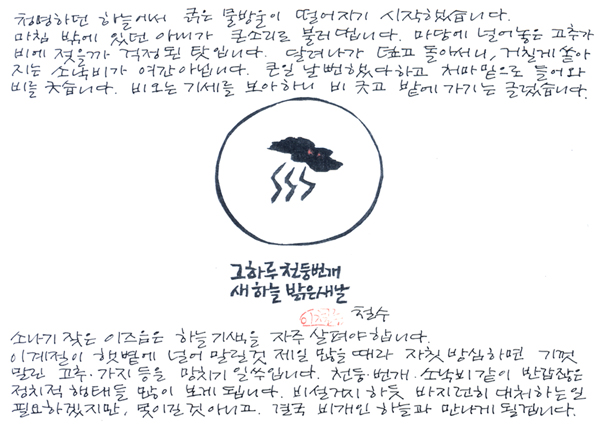 청명하던 하늘에서 굵은 물방울이 떨어지기 시작했습니다.
마침 밖에 있던 아내가 큰소리로 불러댑니다. 마당에 널어놓은 고추가
비에 젖을까 걱정된 탓입니다. 달려나가 덮고 돌아서니, 거칠게 쏟아
지는 소낙비가 여간 아닙니다. 큰일 날뻔했다 하고 처마밑으로 들어와
비를 긋습니다. 비오는 기세를 보아하니 비 긋고 밭에 가기는 글렀습니다.
그 하루 천둥번개
새 하늘 밝은 새날
철수
소나기 잦은 이즈음은 하늘기색을 자주 살펴야 합니다.
이계절이 햇볕에 널어 말릴것 제일 많을 때라 자칫 방심하면 기껏
말린 고추·가지 등을 망치기 일쑤입니다. 천둥·번개·소낙비 같이 반갑잖은
정치적 행태들 많이 보게 됩니다. 비설거지 하듯 바지런히 대처하는 일
필요하겠지만, 몇이 될 것 아니고, 결국 비개인 하늘과 만나게 될겁니다.